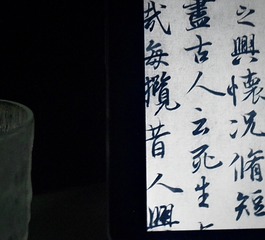 之興懷況脩短
盡古人云死生
哉每攬昔人興